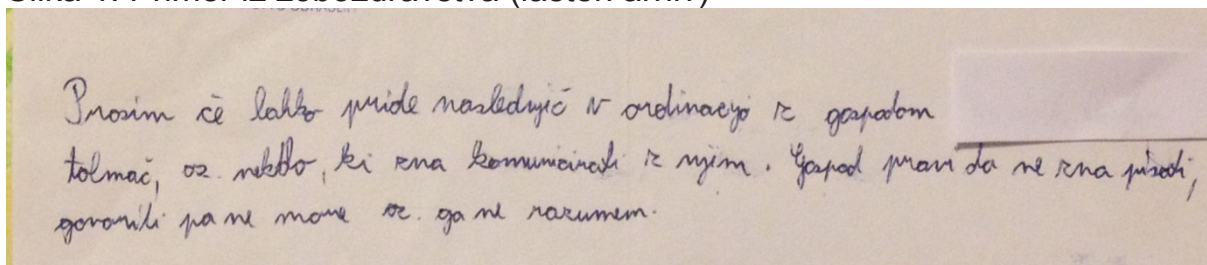 Prosim če lahko pride naslednjič v ordinacijo z gospodom
tolmač, oz. nekdo, ki zna komunicirati z njim. Gospod pravi da ne zna pisati,
govoriti pa ne more oz. ga ne razumem.